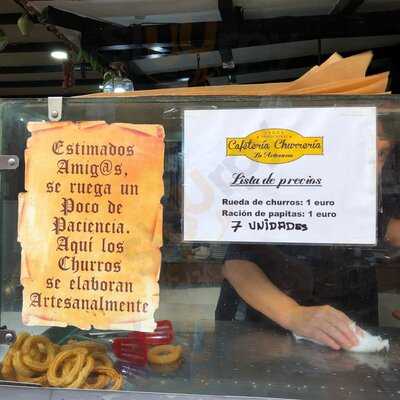 Estimados
Amig@s,
se ruega un
Poco de
Paciencia.
Aquí los
Churros
se elaboran
Artesanalmente
Cafetería Churrería
La Artesana
Lista de precios
Rueda de churros: 1 euro
Ración de papitas: 1 euro
7 UNIDADES